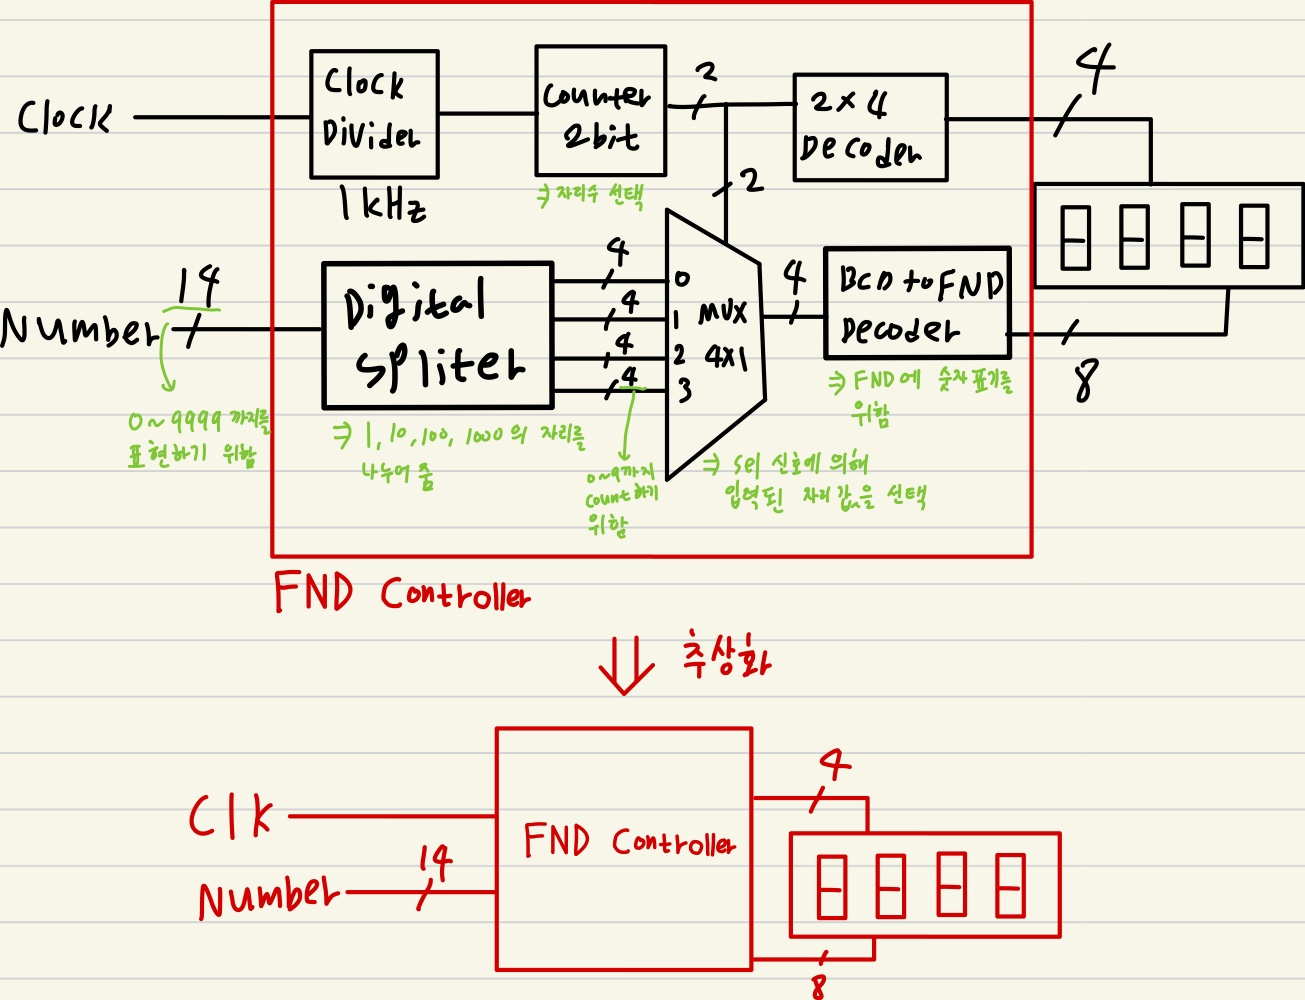 Clock
Clock
Divider
1kHz
Counter
2bit
⇒ 자리수 선택
2
2
2 × 4
Decoder
4
Number
14
0~9999 까지를
표현하기 위함
Digital
Spliter
⇒ 1, 10, 100, 1000의 자리를
나누어 줌
4
4
4
4
0~9까지
Count하기
위함
0
1
2
3
MUX
4x1
⇒ Sel 신호에 의해
입력된 자리값을 선택
4
BCD to FND
Decoder
⇒ FND에 숫자 표기를
위함
8
FND Controller
추상화
Clk
Number
14
FND Controller
4
8